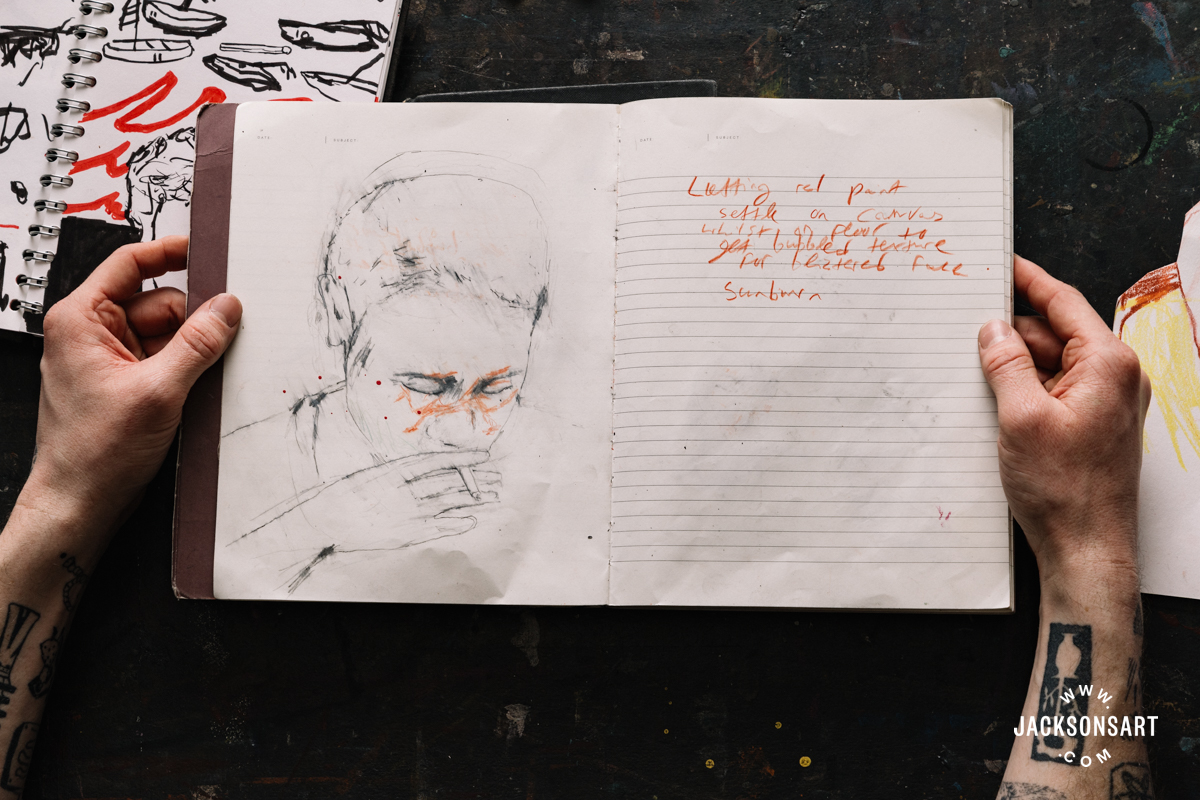 DATE
SUBJECT
DATE
SUBJECT
Letting red paint
settle on canvas
whilst on floor to
get bubbled texture
for blistered face.
Sunburn
WWW.
JACKSONSART
.COM